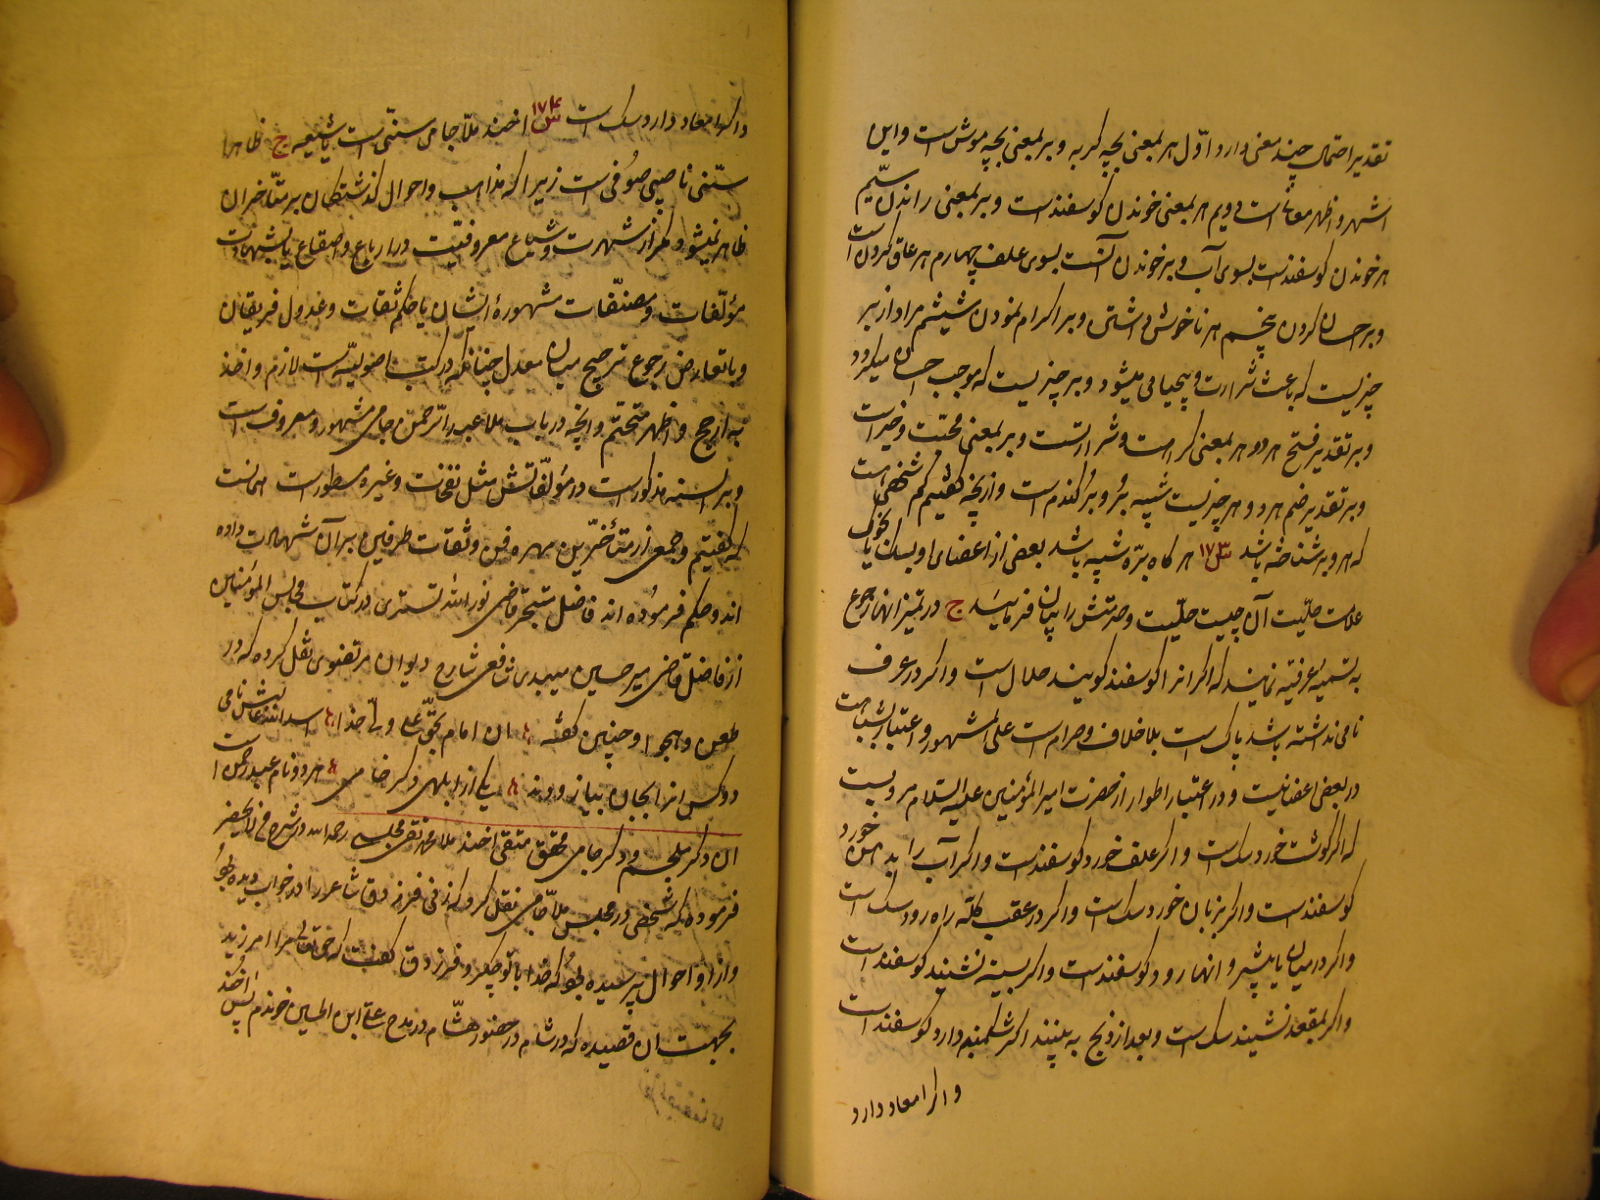 تقدیر احتمال چند معنی دارد اول هر بمعنی بچه کربه و بر بمعنی بچه موش است و این
اشهر و اظهر معانی است دویم هر بمعنی خوندن کوسفند است و بر بمعنی راندن سیم
هر خوندن کوسفند است بسوی آب و بر خوندن آنست بسوی علف چهارم هر عاق کردن است
و بر احسان کردن پنجم هر ناخوش داشتن و بر اکرام نمودن ششم مراد از بر
چیزیست که باعث شرارت و بیحیایی میشود و بر چیزیست که موجب احسان میکردد
و بر تقدیر فتح هر دو هر بمعنی کراهت و شرارتست و بر بمعنی محبت و خیر است
و بر تقدیر ضم هر دو هر چیزیست شبیه ببر و بر کندم است و از آنچه کفتیم کم شخصی است
که هر و بر شناخته باشد س ۱۷۳ هر کاه بره شبیه باشد بعضی از اعضای او بسک یا بخوک
علامت حلیت آن چیست حلیت و حرمتش را بیان فرمایید ج در تمیز انها رجوع
به تسمیه عرفیه نمایند که اکر انرا کوسفند کویند حلال است و اکر در عرف
نامی نداشته باشد پاک است بلا خلاف و حرام است علی المشهور و اعتبار بشباهت
در بعض اعضا نیست و در اعتبار اطوار از حضرت امیر المؤمنین علیه السلام مرویست
که اکر کوشت خورد سک است و اکر علف خورد کوسفند است و اکر آب را بدهن خورد
کوسفند است و اکر بزبان خورد سک است و اکر در عقب کله راه رود سک است
و اکر در میان یا پیشرو انها رود کوسفند است و اکر بسینه نشیند کوسفند است
و اکر بمقعد نشیند سک است و بعد از ذبح به بینند اکر شکمبه دارد کوسفند است
و اکر امعاء دارد
و اکر امعاء دارد سک است س ۱۷۴ اخند ملا جامی سنی است یا شیعه ج ظاهرا
سنی ناصبی صوفی است زیرا که مذاهب و احوال کذشتکان بر متاخران
ظاهر نمیشود مکر از شهرت و شیاع معروفیت در ارباع و اصقاع یا بشهادت
مؤلفات و مصنفات مشهوره ایشان یا حکم ثقات و عدول فریقان
و با تعارض رجوع ترجیح میان معدل چنانکه در کتب اصولیه است لازم و اخذ
به ارجح و اظهر متحتم و آنچه در باب ملا عبد الرحمن جامی مشهور و معروف است
و بر السنه مذکور است در مؤلفاتش مثل نفحات و غیره مسطور است همانست
که کفتیم و جمعی از متأخرین مهره فن و ثقات طرفین بر آن شهادت داده
اند و حکم فرموده اند فاضل متبحر قاضی نور الله تستری در کتاب مجالس المؤمنین
از فاضل قاضی میر حسین میبدی شافعی شارح دیوان مرتضوی نقل کرده که در
طعن و هجو او چنین کفته ان امام بحق علی ولی خدا اسد الله غالبش نامی
دو کس او را بجان بیازردند یکی از ابلهی دکر خامی هر دو نام عبد رحمن است
ان دکر ملجم و دکر جامی محقق متقی اخند ملا محمد تقی مجلسی رحمه الله در شرح من لا یحضر
فرموده که شخصی در مجلس ملا جامی نقل کرد که زنی فرزدق شاعر را در خواب دیده بود
و از او احوال پرسیده بود که خدا با تو چکرد فرزدق کفت که حق تعالی مرا امرزید
بجهت ان قصیده که در شام در حضور هشام در مدح علی ابن الحسین خوندم پس اخند